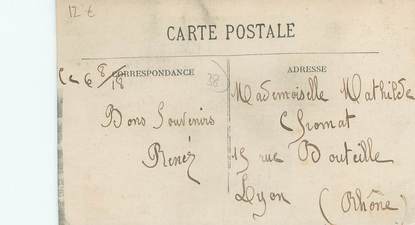 12 €
CARTE POSTALE
CORRESPONDANCE
ADRESSE
Le 6 8/18
38
Bons Souvenirs
René
Mademoiselle Mathilde
Chomat
15 rue Bouteille
Lyon
(Rhône)